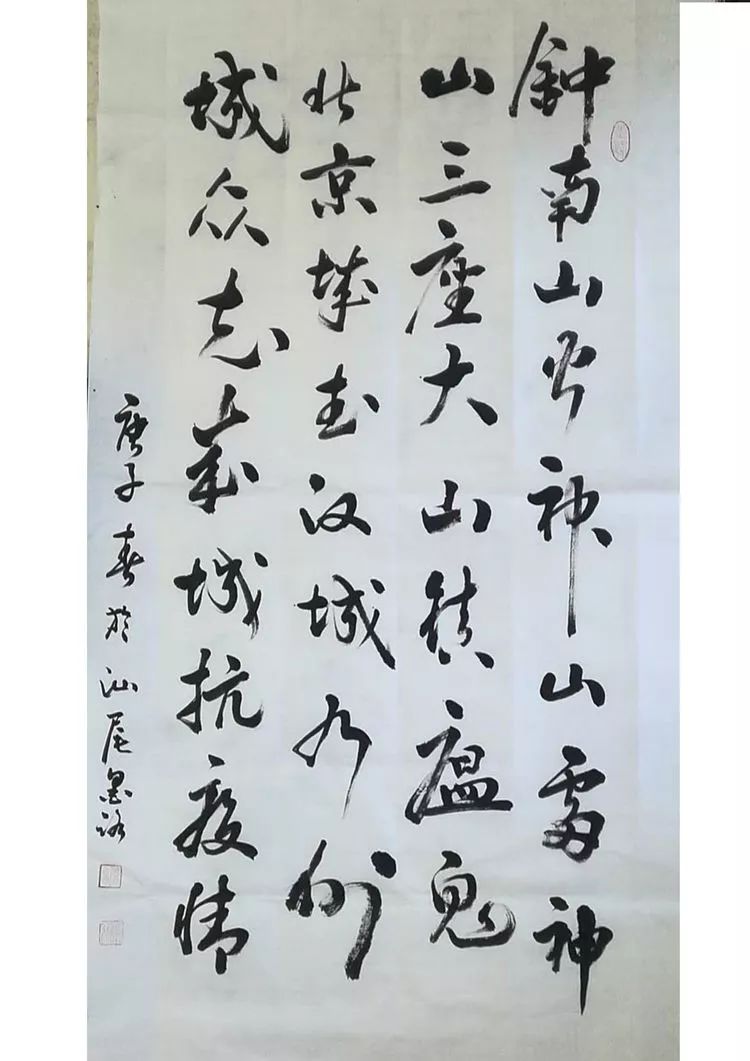 鈡南山火神山雷神
山三座大山镇瘟鬼
北京城武汉城九州
城众志成城抗疫情
庚子春於汕尾墨